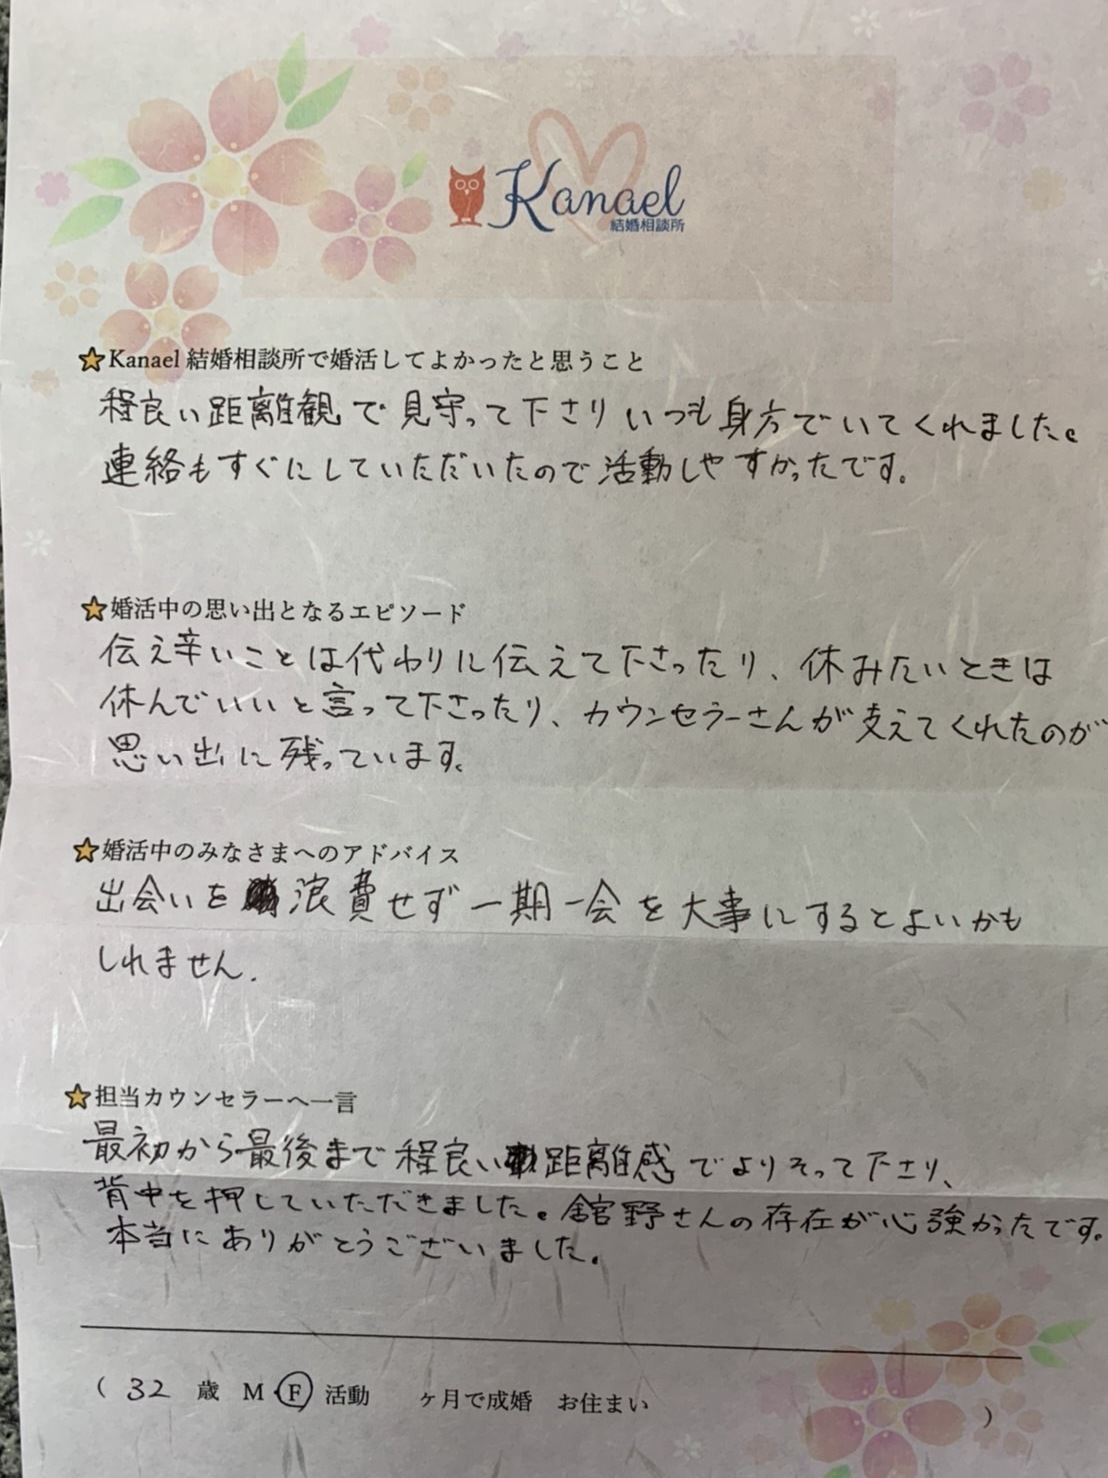 Kanael
結婚相談所
Kanael 結婚相談所で婚活してよかったと思うこと
程良い距離観で見守って下さりいつも身方でいてくれました。
連絡もすぐにしていただいたので活動しやすかったです。
婚活中の思い出となるエピソード
伝え辛いことは代わりに伝えて下さったり、休みたいときは
休んでいいと言って下さったり、カウンセラーさんが支えてくれたのが
思い出に残っています。
婚活中のみなさまへのアドバイス
出会いを浪費せず一期一会を大事にするとよいかも
しれません.
担当カウンセラーへ一言
最初から最後まで程良い距離感でよりそって下さり、
背中を押していただきました。舘野さんの存在が心強かったです。
本当にありがとうございました。
( 32 歳 M・F 活動 ヶ月で成婚 お住まい )